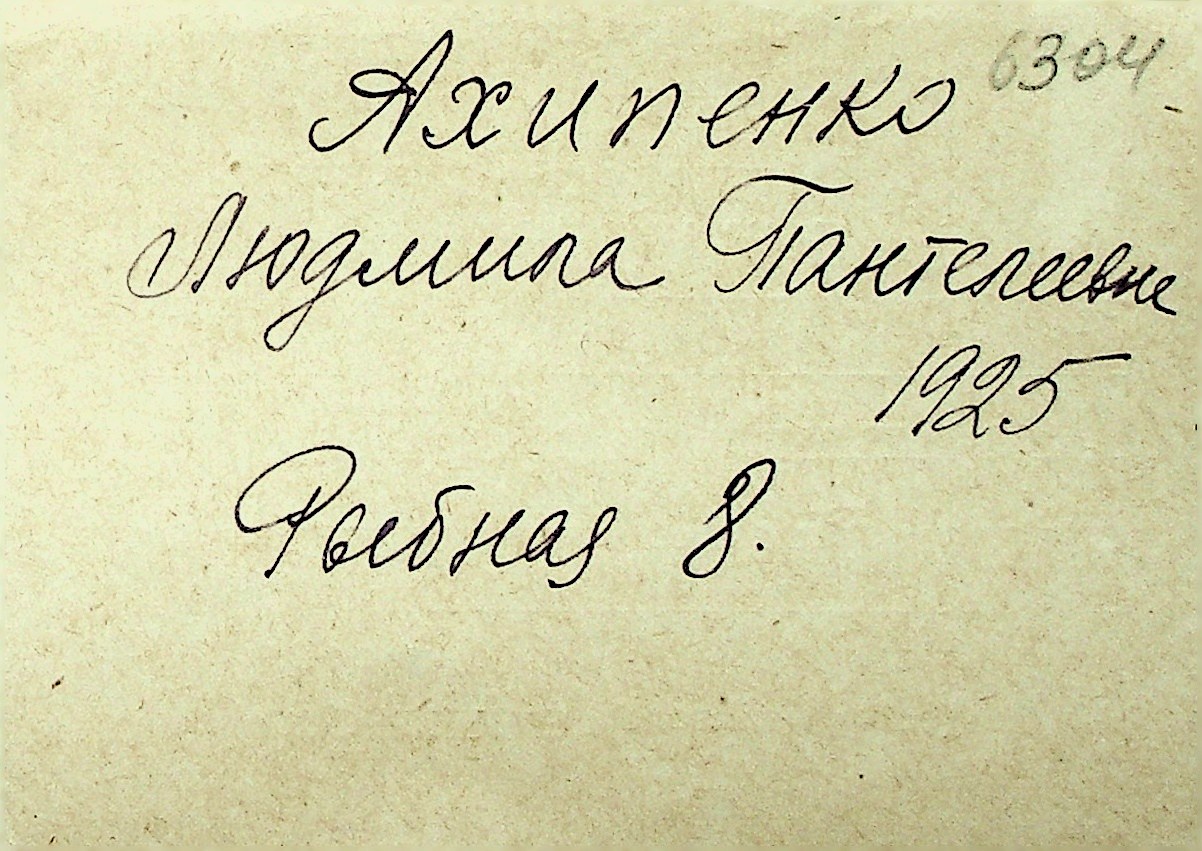 6304
Ахипенко
Людмила Пантелеевне
1925
Рыбная 8.